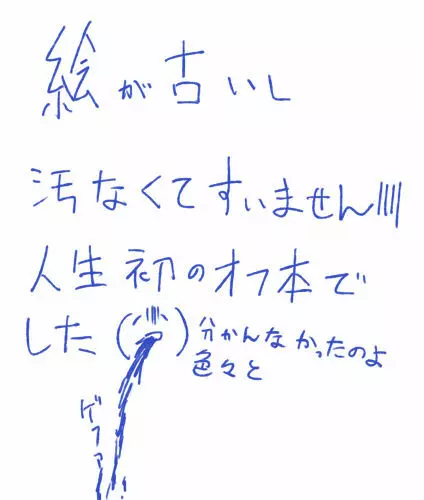 絵が古いし
汚なくてすいません
人生初のオフ本で
した
分かんなかったのよ
色々と
ゲファ!